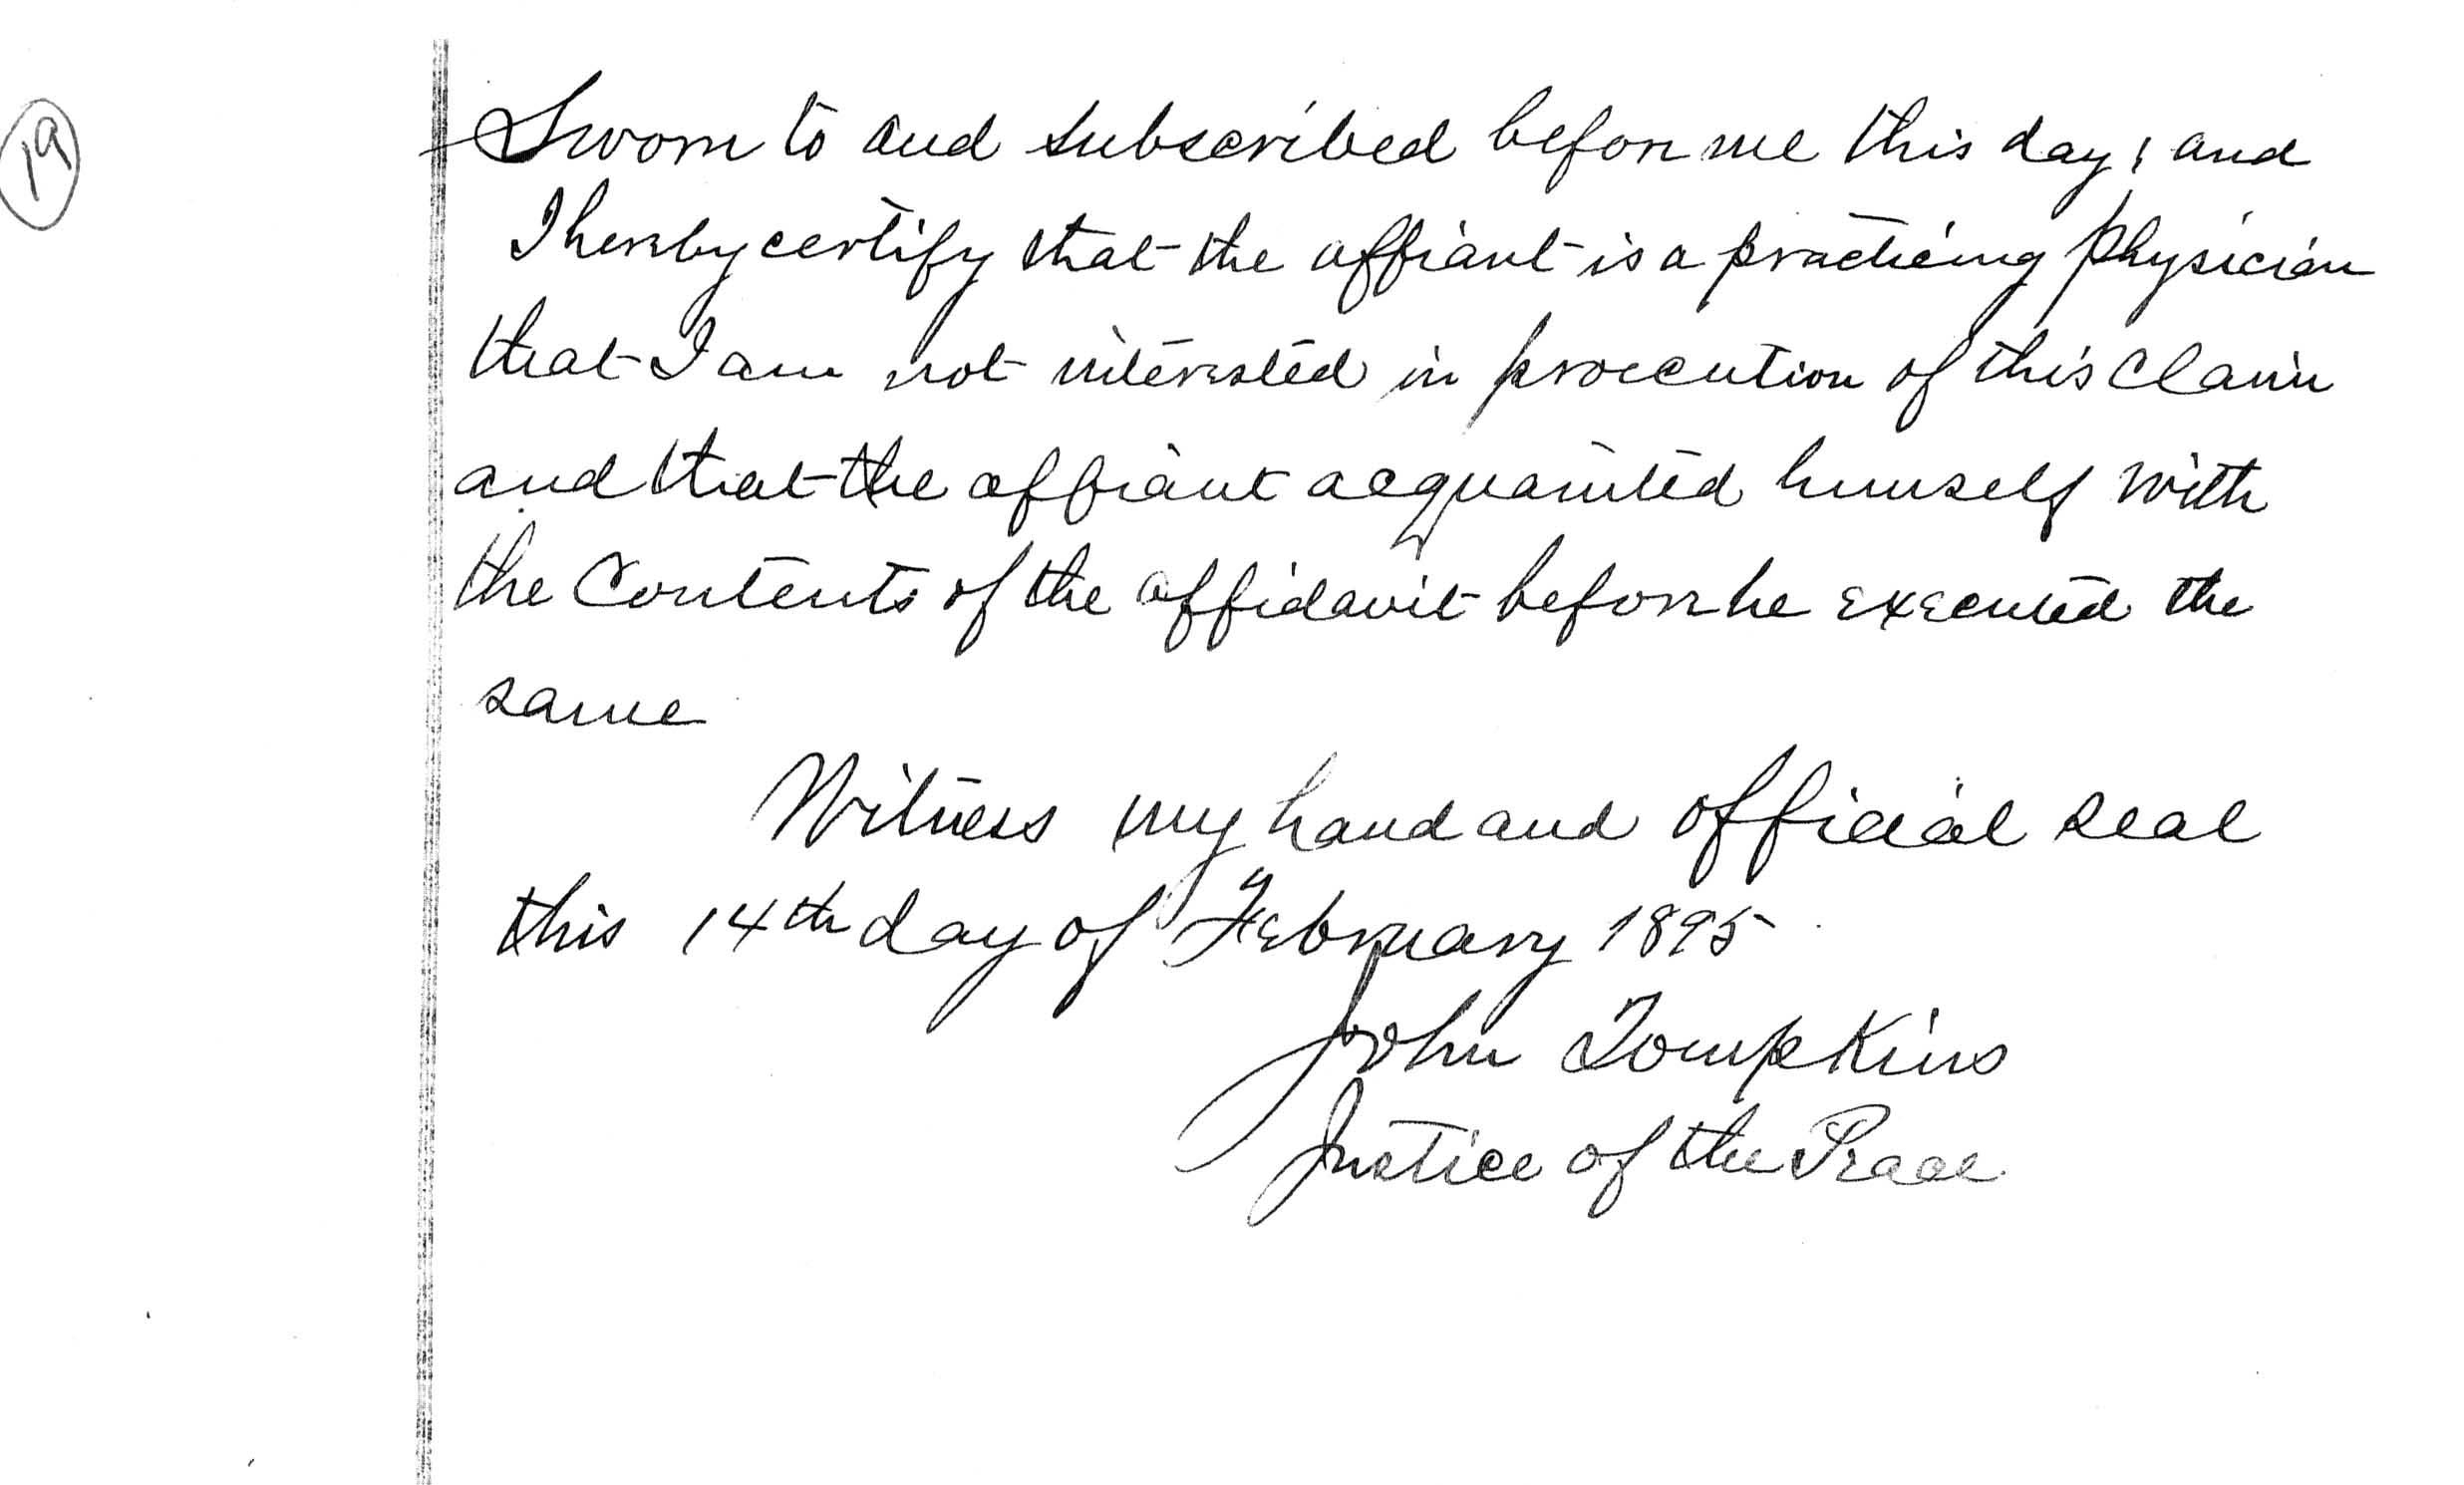 19
Sworn to and subscribed before me this day, and
I hereby certify that the affiant is a practicing physician
that I am not interested in proecution of this Claim
and that the affiant acquainted himself with
the Contents of the affidavit before he executed the
same
Witness my hand and official seal
this 14th day of February 1895
John Tompkins
Justice of the Peace